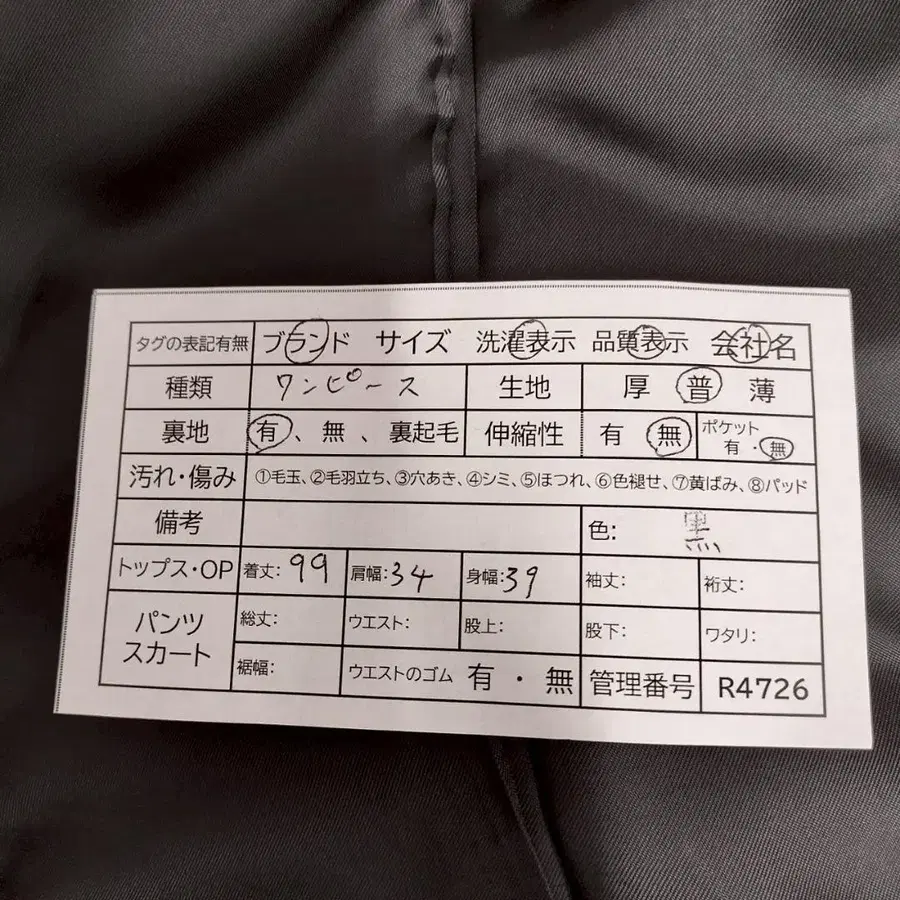 タグの表記有無 ブランド サイズ 洗濯表示 品質表示 会社名
種類 ワンピース 生地 厚 普 薄
裏地 有、無、裏起毛 伸縮性 有 無 ポケット 有・無
汚れ・傷み ①毛玉、②毛羽立ち、③穴あき、④シミ、⑤ほつれ、⑥色褪せ、⑦黄ばみ、⑧パッド
備考 色: 黒
トップス・OP 着丈: 99 肩幅: 34 身幅: 39 袖丈: 裄丈:
パンツ スカート 総丈: ウエスト: 股上: 股下: ワタリ:
裾幅: ウエストのゴム 有・無 管理番号 R4726